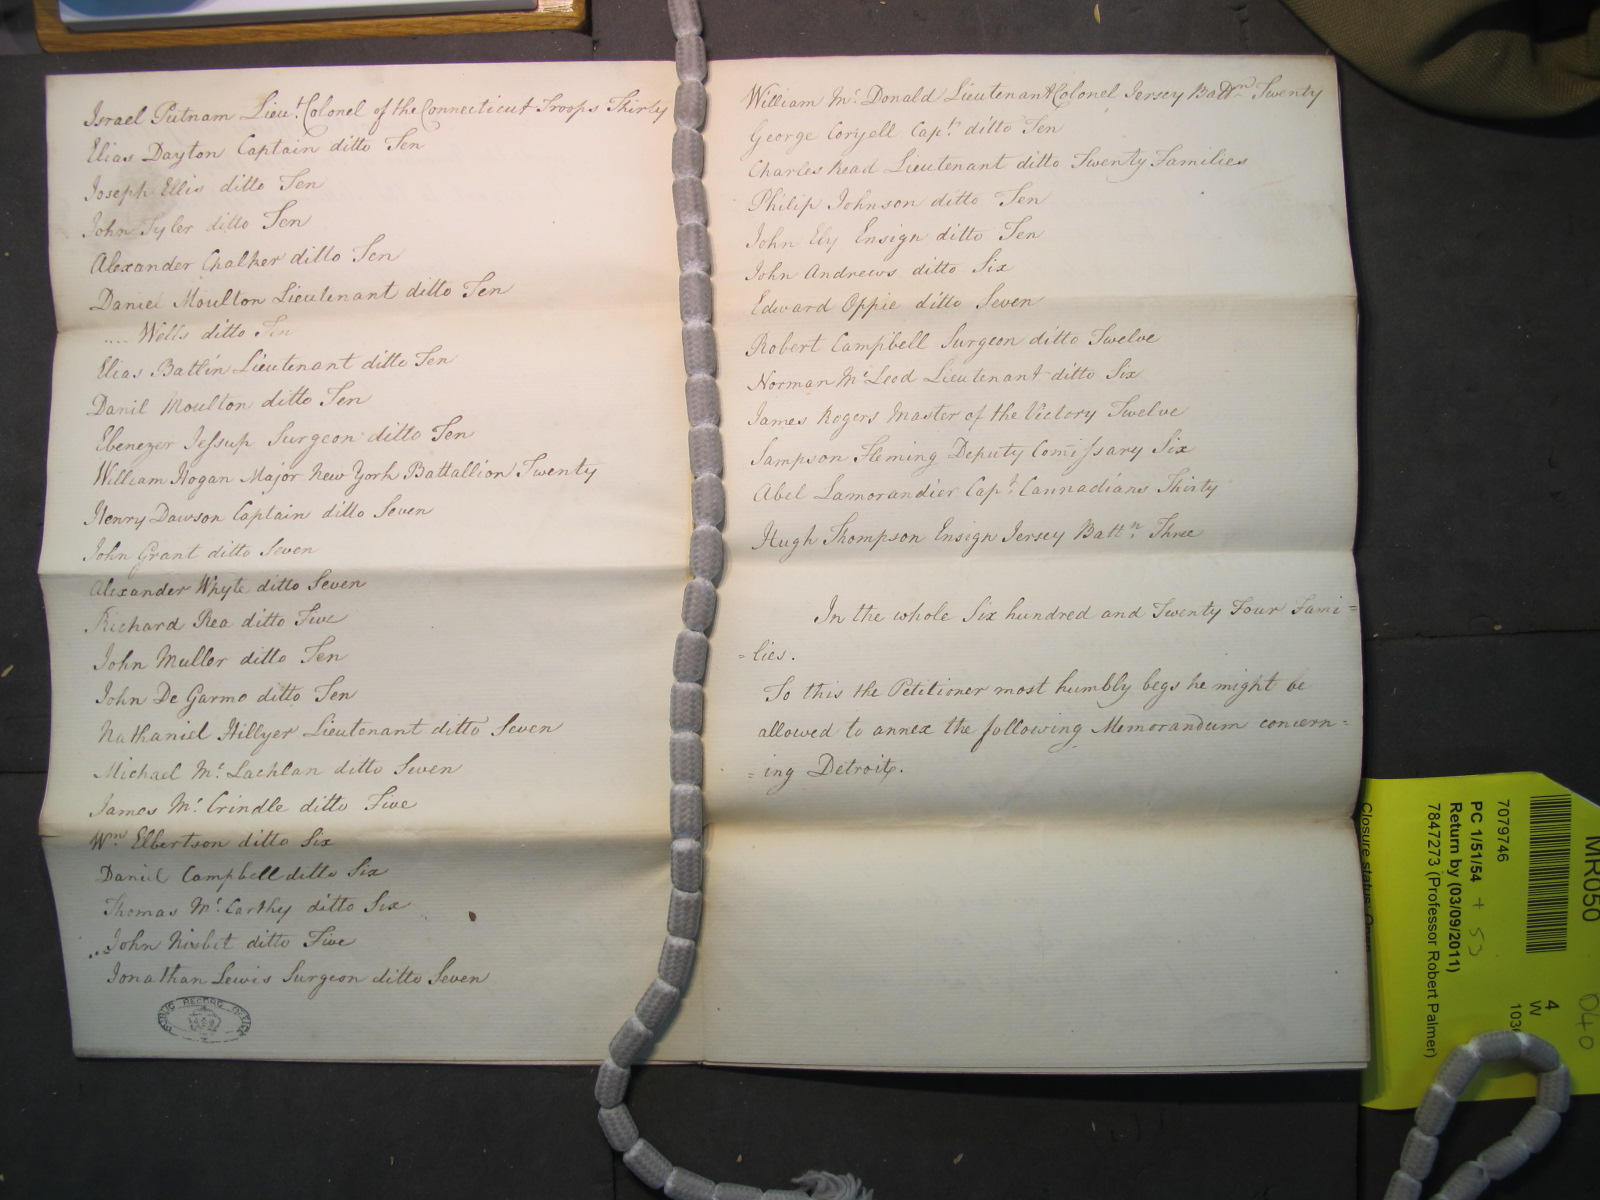 Israel Putnam Lieut. Colonel of the Connecticut Troops Thirty
Elias Dayton Captain ditto Ten
Joseph Ellis ditto Ten
John Tyler ditto Ten
Alexander Chalker ditto Ten
Daniel Moulton Lieutenant ditto Ten
.... Wells ditto Ten
Elias Batlin Lieutenant ditto Ten
Danil Moulton ditto Ten
Ebenezer Jessup Surgeon ditto Ten
William Hogan Major New York Battallion Twenty
Henry Dawson Captain ditto Seven
John Grant ditto Seven
Alexander Whyte ditto Seven
Richard Rea ditto Five
John Muller ditto Ten
John De Garmo ditto Ten
Nathaniel Hillyer Lieutenant ditto Seven
Michael Mc. Lachlan ditto Seven
James Mc. Crindle ditto Five
Wm Elbertson ditto Six
Daniel Campbell ditto Six
Thomas Mc. Carthy ditto Six
.. John Nisbit ditto Five
Jonathan Lewis Surgeon ditto Seven
PUBLIC RECORD OFFICE
William Mc. Donald Lieutenant Colonel Jersey Battn Twenty
George Coryell Capt. ditto Ten
Charles Read Lieutenant ditto Twenty Families
Philip Johnson ditto Ten
John Ely Ensign ditto Ten
John Andrews ditto Six
Edward Oppie ditto Seven
Robert Campbell Surgeon ditto Twelve
Norman Mc. Leod Lieutenant ditto Six
James Rogers Master of the Victory Twelve
Sampson Fleming Deputy Comissary Six
Abel Lamorandier Capt. Cannadians Thirty
Hugh Thompson Ensign Jersey Battn. Three
In the whole Six hundred and Twenty Four Fami=
=lies.
To this the Petitioner most humbly begs he might be
allowed to annex the following Memorandum concern=
=ing Detroit.
MR050
040
4
W
103
7079746
PC 1/51/54 + 53
Return by (03/09/2011)
7847273 (Professor Robert Palmer)
Closure status: Open